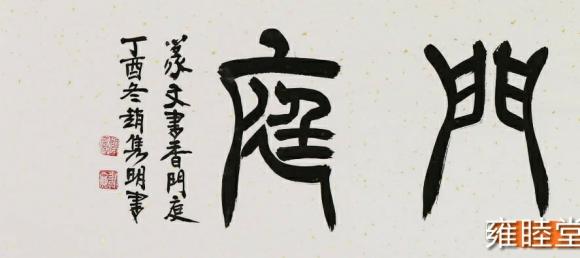 門庭
篆文書香門庭
丁酉冬趙隽明書
雍睦堂